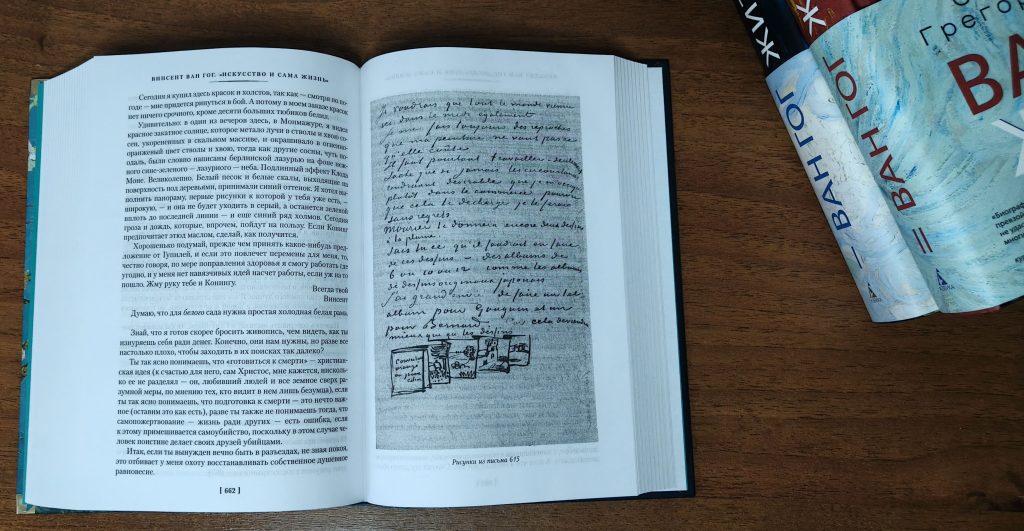 ВИНСЕНТ ВАН ГОГ. «ИСКУССТВО И САМА ЖИЗНЬ»
Сегодня я купил здесь красок и холстов, так как — смотря по по-
годе — мне придется ринуться в бой. А потому в моем заказе красок
нет ничего срочного, кроме десяти больших тюбиков белил.
Удивительно: в один из вечеров здесь, в Монмажуре, я видел
красное закатное солнце, которое метало лучи в стволы и хвою со-
сен, укорененных в скальном массиве, и окрашивало в огненно-
оранжевый цвет стволы и хвою, тогда как другие сосны, чуть по-
одаль, были словно написаны берлинской лазурью на фоне неж-
ного сине-зеленого — лазурного — неба. Подлинный эффект Клода
Моне. Великолепно. Белый песок и белые скалы, выходящие на
поверхность под деревьями, принимали синий оттенок. Я хотел вы-
полнить панораму, первые рисунки к которой у тебя уже есть, —
широкую, — и она не будет уходить в серый, а останется зеленой
вплоть до последней линии — и еще синий ряд холмов. Сегодня
гроза и дождь, которые, впрочем, пойдут на пользу. Если Конинг
предпочитает этюд маслом, сделай, как получится.
Хорошенько подумай, прежде чем принять какое-нибудь пред-
ложение от Гупилей, и если это повлечет перемены для меня, то,
честно говоря, по мере поправления здоровья я смогу работать где
угодно, и у меня нет навязчивых идей насчет работы, если уж на то
пошло. Жму руку тебе и Конингу.
Всегда твой
Винсент
Думаю, что для белого сада нужна простая холодная белая рама.
Знай, что я готов скорее бросить живопись, чем видеть, как ты
изнуряешь себя ради денег. Конечно, они нам нужны, но разве все
настолько плохо, чтобы заходить в их поисках так далеко?
Ты так ясно понимаешь, что «готовиться к смерти» — христиан-
ская идея (к счастью для него, сам Христос, мне кажется, нисколь-
ко ее не разделял — он, любивший людей и все земное сверх ра-
зумной меры, по мнению тех, кто видит в нем лишь безумца), если
ты так ясно понимаешь, что подготовка к смерти — это нечто важ-
ное (оставим это как есть), разве ты также не понимаешь тогда, что
самопожертвование — жизнь ради других — есть ошибка, если
к этому примешивается самоубийство, поскольку в этом случае че-
ловек поистине делает своих друзей убийцами.
Итак, если ты вынужден вечно быть в разъездах, не зная покоя,
это отбивает у меня охоту восстанавливать собственное душевное
равновесие.
[ 662 ]
je voudrais que tout le monde vienne
ici dans le midi également
Je me fais toujours des reproches
que ma peinture ne vaut pas ce
qu'elle coûte
Il faut pourtant travailler – seulement
sache que si jamais les circonstances
rendraient désirable que je m'occupe
plutôt dans le commerce pourvu
que cela te décharge je le ferais
sans regret.
Mourier te donnera encore deux dessins
à la plume.
Sais tu ce qu'il faudrait en faire
de ces dessins – des albums de
6 ou 10 ou 12 comme les albums
de dessins originaux japonais
J'ai grand envie de faire un tel
album pour Gauguin et un
pour Bernard. cela deviendra
mieux que ça les dessins
Рисунки из письма 615
ВАН ГОГ
I
ВАН ГОГ
II
АЗБУКА
Грего
ВА
Ж
«Биограф